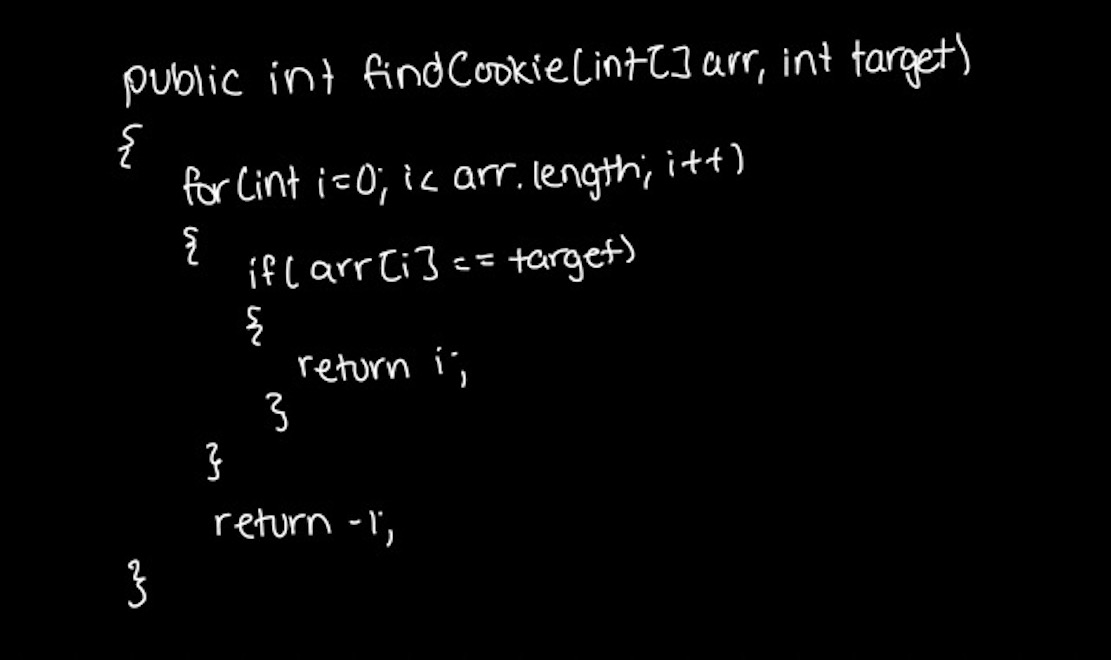 public int findCookie(int[] arr, int target)
{
for(int i=0; i< arr.length; i++)
{
if( arr[i] == target)
{
return i;
}
}
return -1;
}